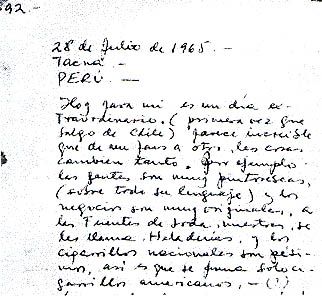 392.-
28 de Julio de 1965.-
Tacna -
PERÚ. -
Hoy para mi es un día ex-
traordinario. (primera vez que
salgo de Chile) parece increible
que de un pais a otro, las cosas
cambien tanto. Por ejemplo
las gentes son muy pintorescas,
(sobre todo su lenguaje) y los
negocios son muy originales, a
las Fuentes de Soda, nuestras, se
les llama, Heladerias, y los
cigarrillos nacionales son pési-
mos, asi es que se fuma solo ci-
garrillos americanos, - (!)